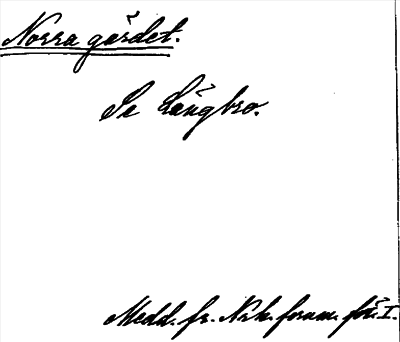 Norra gärdet.
Se Långbro.
Medd. fr. Nrk. fornm. för. I.